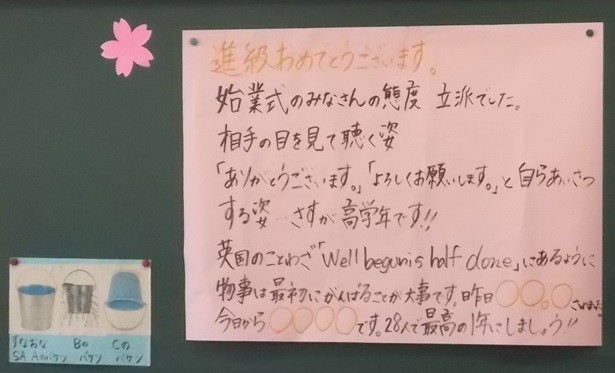 進級おめでとうございます。
始業式のみなさんの態度 立派でした。
相手の目を見て聴く姿
「ありがとうございます。」「よろしくお願いします。」と自らあいさつ
する姿…さすが高学年です!!
英国のことわざ「Well begun is half done」にあるように
物事は最初にがんばることが大事です。昨日〇〇。〇
今日から〇〇〇〇です。28人で最高の1年にしましょう!!
すなおな Bの Cの
バケツ バケツ バケツ